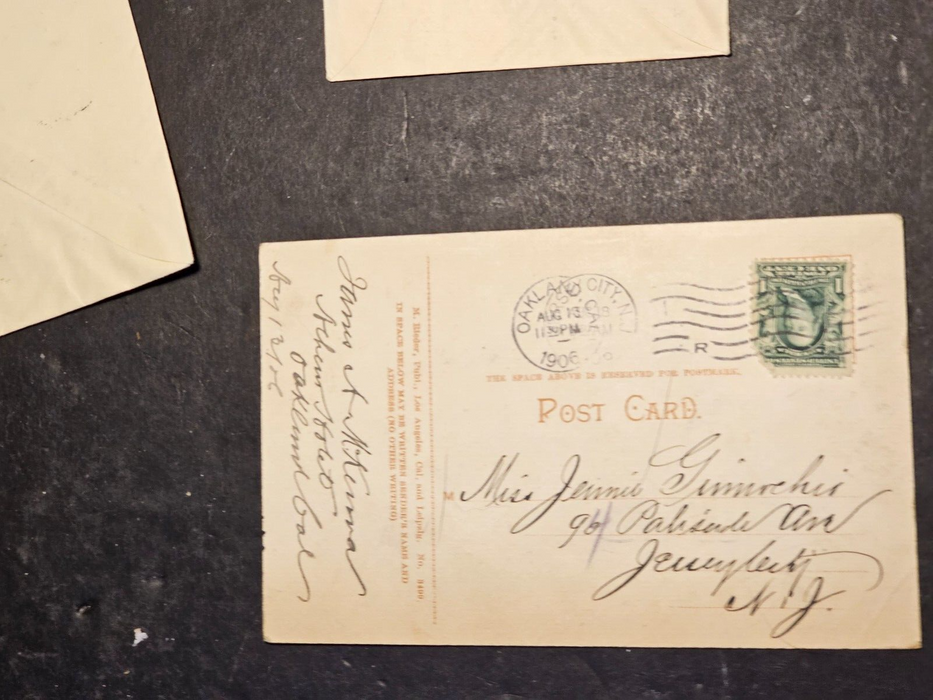 AUG 13
11 30 PM
1906
R
THE SPACE ABOVE IS RESERVED FOR POSTMARK.
POST CARD.
M
Miss Jennie
96 Palisade Ave
Jersey City
N.J.
M. Rieder, Publ., Los Angeles, Cal. and Leipzig. No.
IN SPACE BELOW MAY BE WRITTEN SENDER'S NAME AND
ADDRESS (NO OTHER WRITING)
James A McKenna
Oakland Cal
1